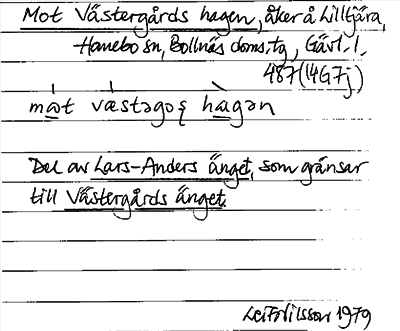 Mot Västergårds hagen, åker å Lilltjära,
Hanebo sn, Bollnäs doms.tg, Gävl. l.
487 (14G7j)
mat væstəgoʂ hagən
Del av Lars-Anders änget, som gränsar
till Västergårds änget.
Leif Nilsson 1979